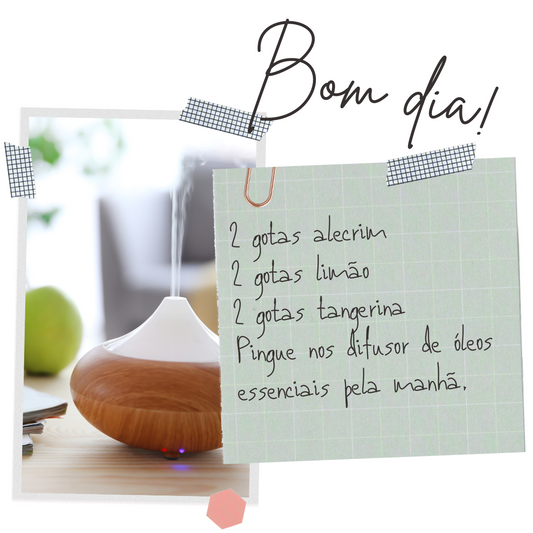 Bom dia!
2 gotas alecrim
2 gotas limão
2 gotas tangerina
Pingue nos difusor de óleos
essenciais pela manhã.